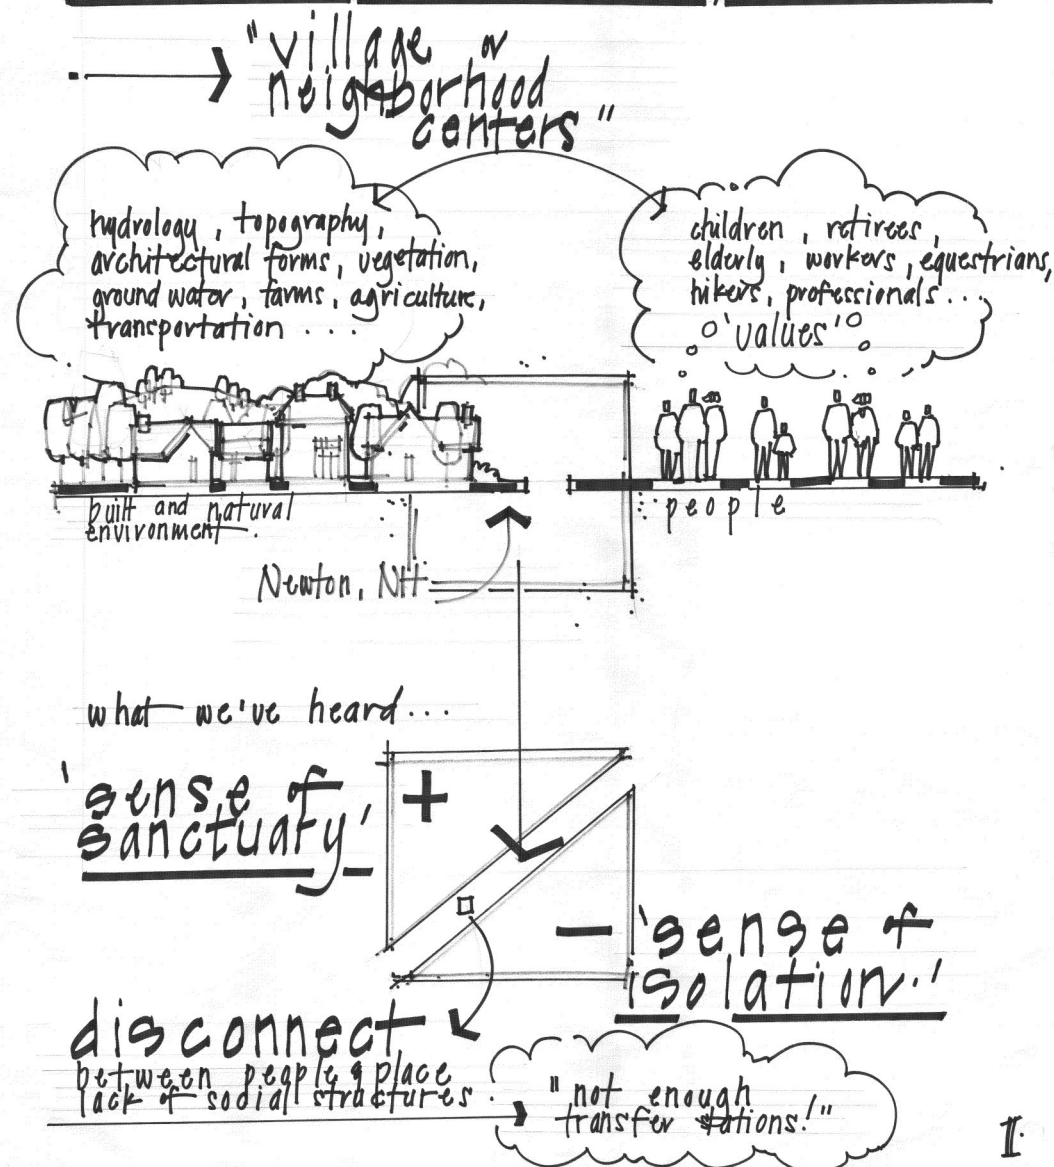 "village or
neighborhood
centers"
hydrology, topography,
architectural forms, vegetation,
ground water, farms, agriculture,
transportation ...
children, retirees,
elderly, workers, equestrians,
hikers, professionals...
'values'
built and natural
environment.
people
Newton, NH
what we've heard...
'sense of
sanctuary'
+
- 'sense of
isolation.'
disconnect
between people & place
lack of sodial structures.
"not enough
transfer stations!"
II.